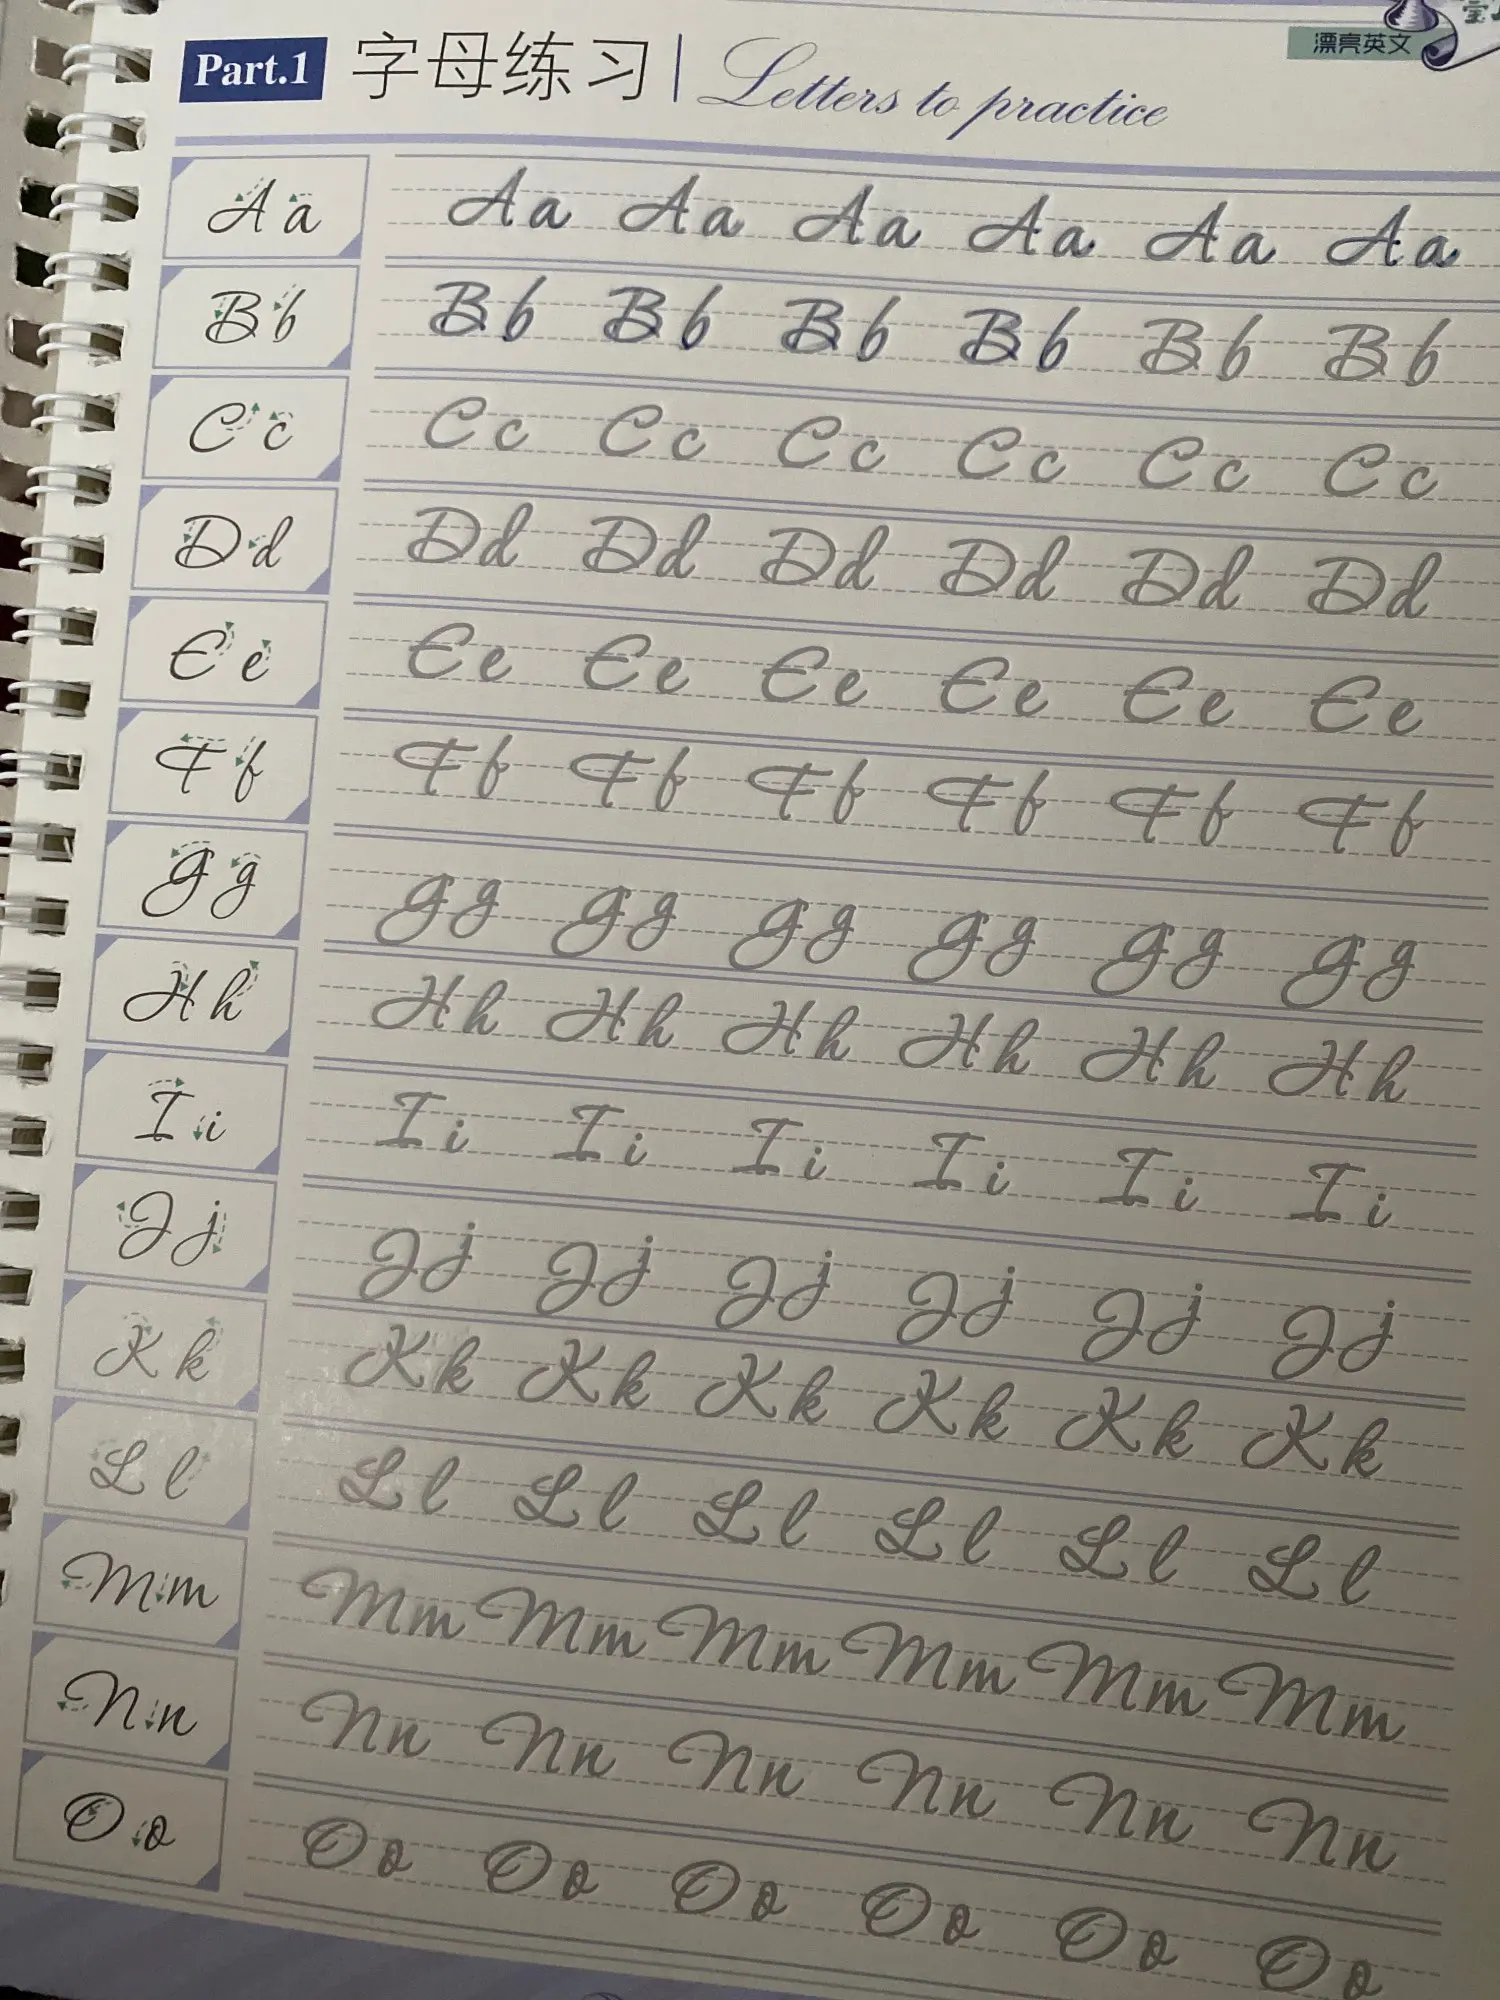 漂亮英文
Part.1 字母练习 Letters to practice
Aa Aa Aa Aa Aa Aa Aa
Bb Bb Bb Bb Bb Bb Bb
Cc Cc Cc Cc Cc Cc Cc
Dd Dd Dd Dd Dd Dd Dd
Ee Ee Ee Ee Ee Ee Ee
Ff Ff Ff Ff Ff Ff Ff
Gg Gg Gg Gg Gg Gg Gg
Hh Hh Hh Hh Hh Hh Hh
Ii Ii Ii Ii Ii Ii Ii
Jj Jj Jj Jj Jj Jj Jj
Kk Kk Kk Kk Kk Kk Kk
Ll Ll Ll Ll Ll Ll Ll
Mm Mm Mm Mm Mm Mm Mm
Nn Nn Nn Nn Nn Nn Nn
Oo Oo Oo Oo Oo Oo Oo